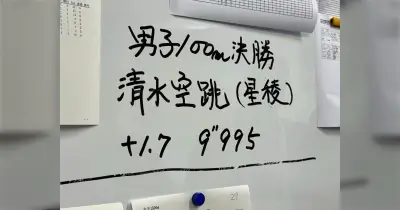 男子100m決勝
清水空跳(星稜)
+1.7 9"995
27